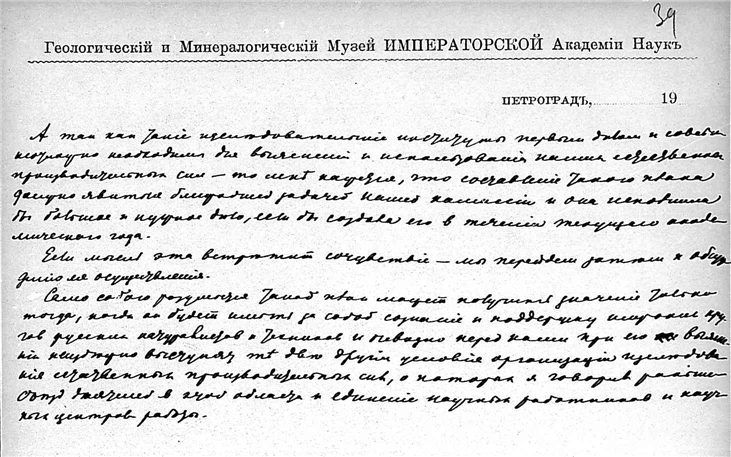 39
Геологическій и Минералогическій Музей ИМПЕРАТОРСКОЙ Академіи Наукъ
ПЕТРОГРАДЪ, 19
А так как такіе изслѣдовательскіе институты первым дѣлом и совер
необходимы для выясненія и использованія наших естественных
производительных сил — то мнѣ кажется, что составленіе такого плана
должно явиться ближайшей задачей нашей комиссіи и она исполнила
бы большое и нужное дѣло, если бы создала его в теченіи текущаго акаде
мическаго года.
Если мысль эта встрѣтит сочувствіе — мы перейдем затѣм к обсу
ея осуществленія.
Само собою разумѣется такой план может получить значеніе только
тогда, когда он будет имѣть за собой сознаніе и поддержку широких кру
гов русских натуралистов и техников и очевидно перед нами при его
выступят тѣ два другія условія организаціи изслѣдова
нія естественных производительных сил, о которых я говорил раньше
в этой области и единеніе научных работников и науч
ных центров работы.